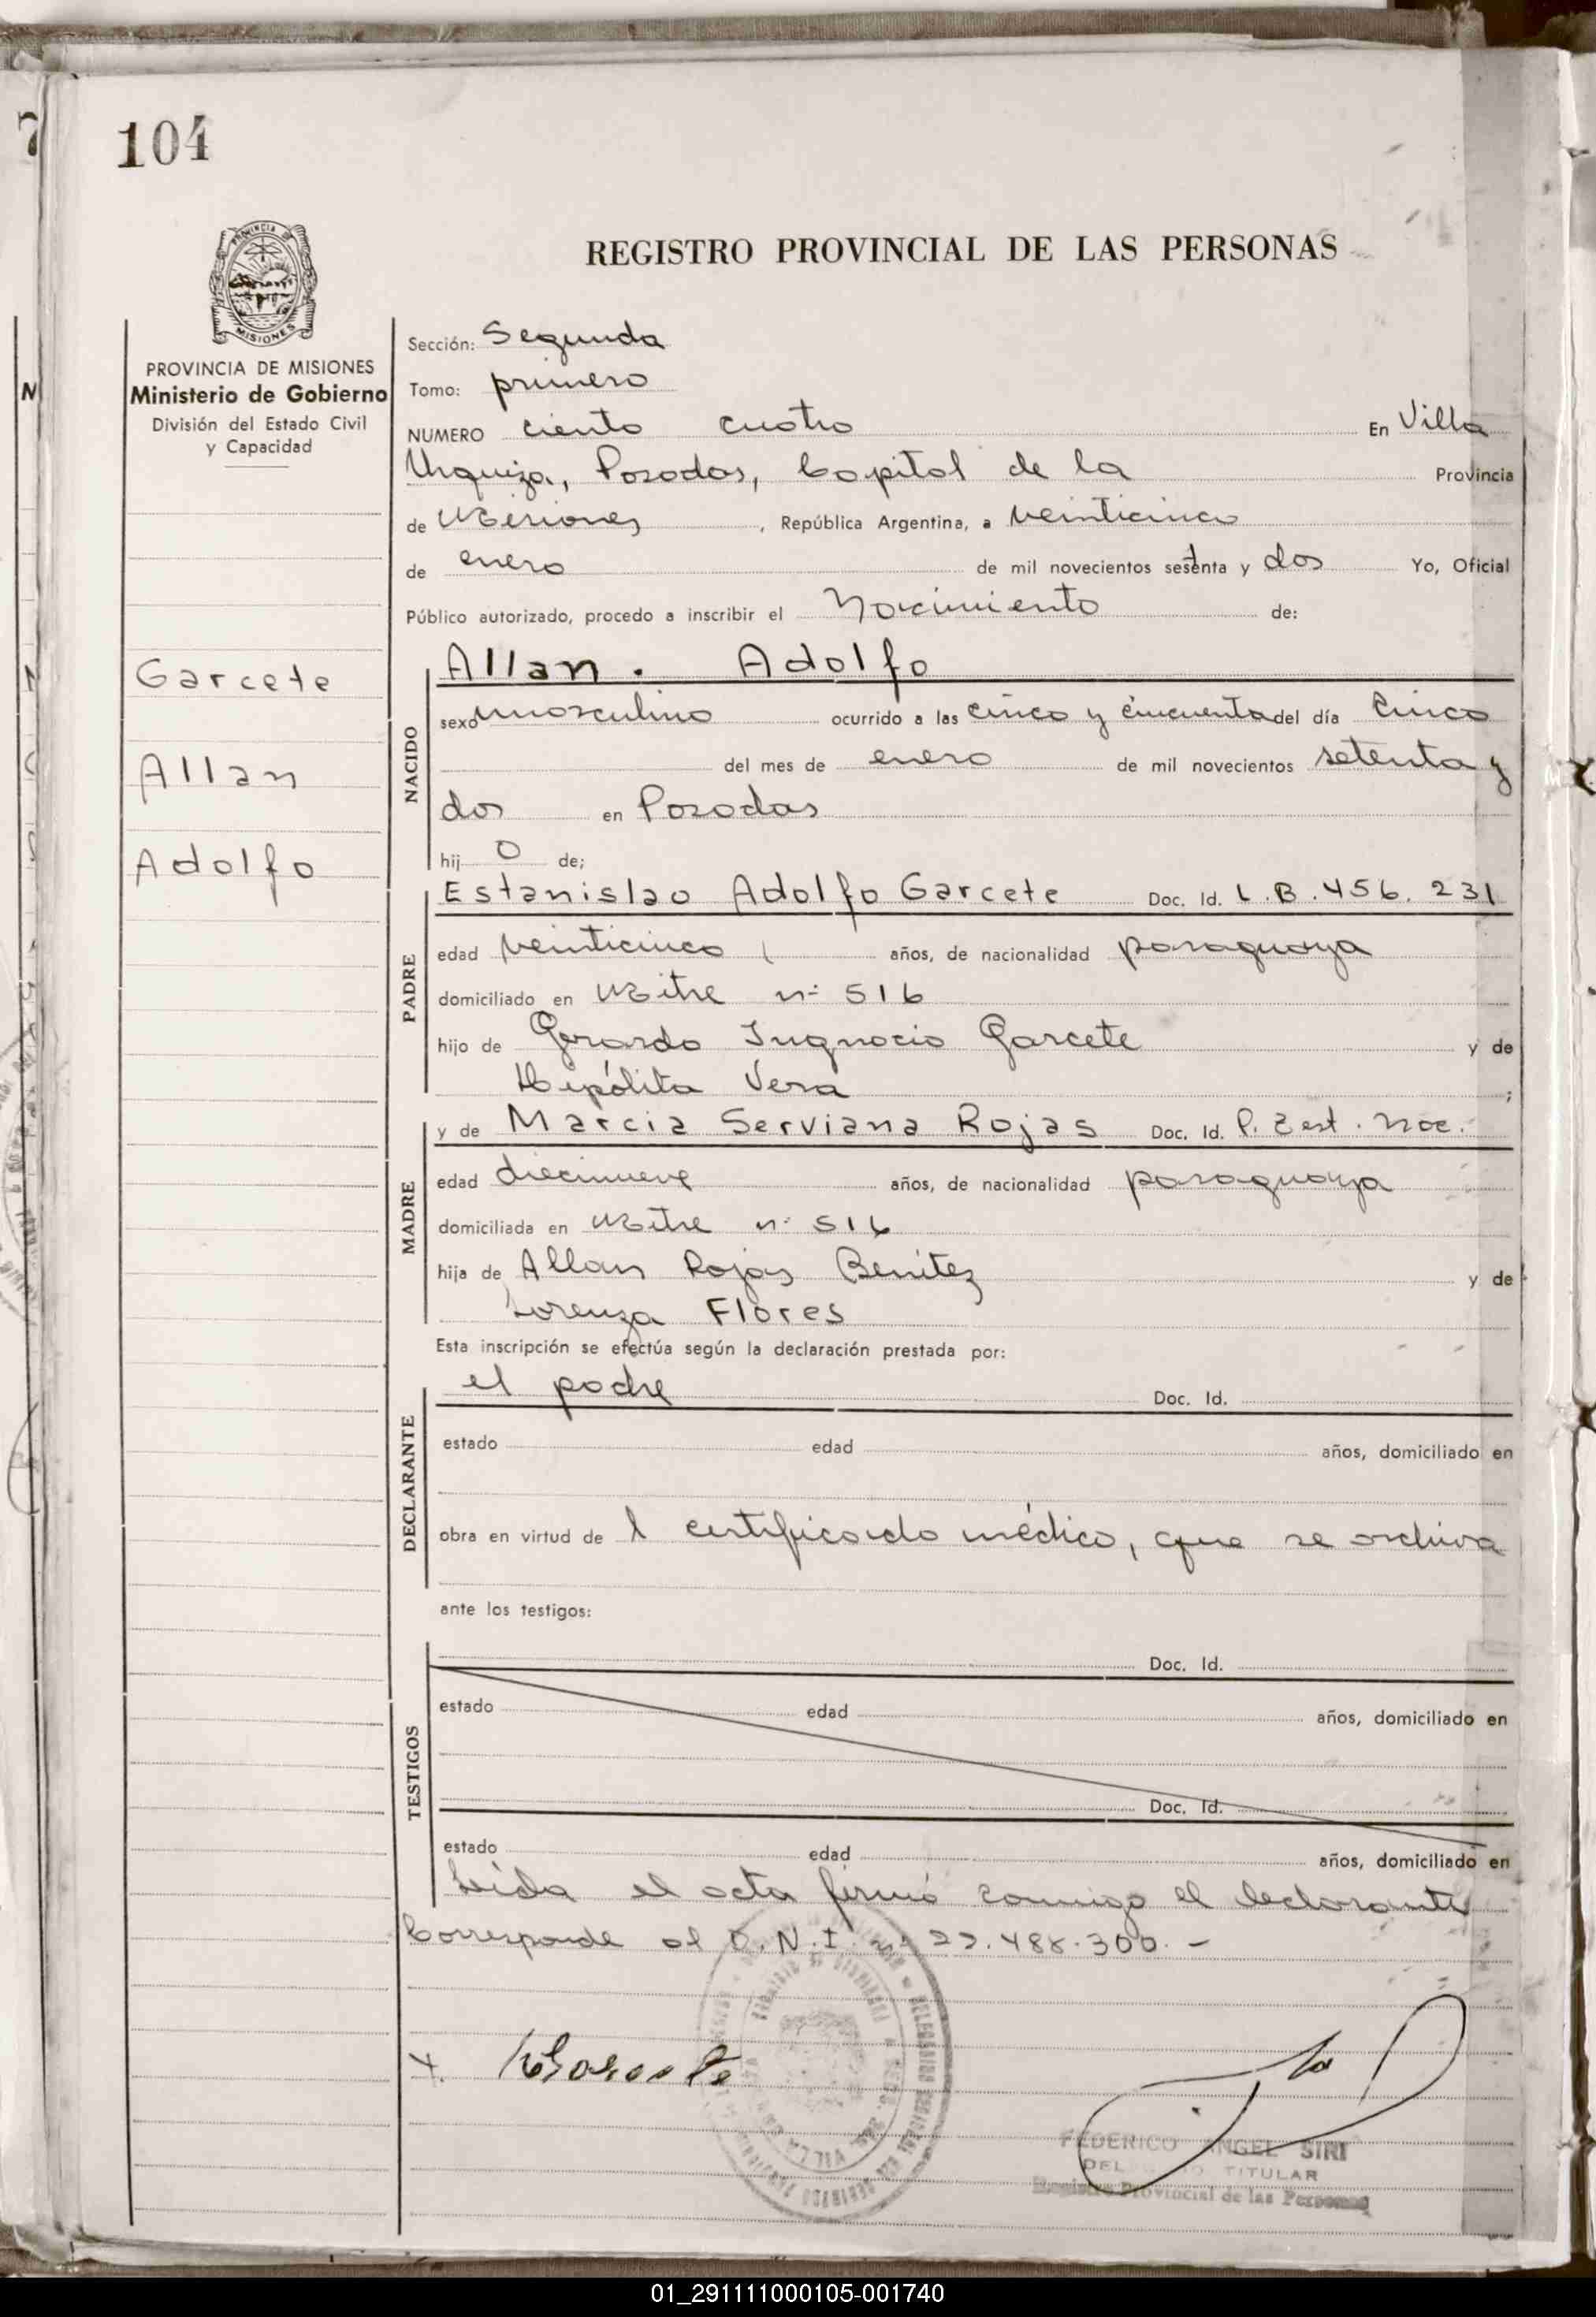 104
REGISTRO PROVINCIAL DE LAS PERSONAS
PROVINCIA DE MISIONES
Ministerio de Gobierno
División del Estado Civil
y Capacidad
Garcete
Allan
Adolfo
Sección: Segunda
Tomo: primero
NUMERO ciento cuatro En Villa
Urquiza, Posadas, Capital de la Provincia
de Misiones, República Argentina, a veinticinco
de enero de mil novecientos setenta y dos Yo, Oficial
Público autorizado, procedo a inscribir el Nacimiento de:
NACIDO
Allan. Adolfo
sexo masculino ocurrido a las cinco y cincuenta del día cinco
del mes de enero de mil novecientos setenta y
dos en Posadas
hij o de;
PADRE
Estanislao Adolfo Garcete Doc. Id. L.B. 456.231
edad veinticinco años, de nacionalidad paraguaya
domiciliado en Mitre nº 516
hijo de Gerardo Ingnacio Garcete y de
Hipólita Vera ;
MADRE
y de Marcia Serviana Rojas Doc. Id. P. Est. Nac.
edad diecinueve años, de nacionalidad paraguaya
domiciliada en Mitre nº 516
hija de Allan Rojas Benítez y de
Lorenza Flores
Esta inscripción se efectúa según la declaración prestada por:
DECLARANTE
el padre Doc. Id.
estado edad años, domiciliado en
obra en virtud de l certificado médico, que se archiva
ante los testigos:
TESTIGOS
Doc. Id.
estado edad años, domiciliado en
Doc. Id.
estado edad años, domiciliado en
Leída el acta firmó conmigo el declarante
Corresponde al D.N.I. nº 22.488.300.-
FEDERICO ANGEL SIRI
TITULAR
Registro Provincial de las Personas
01_291111000105-001740